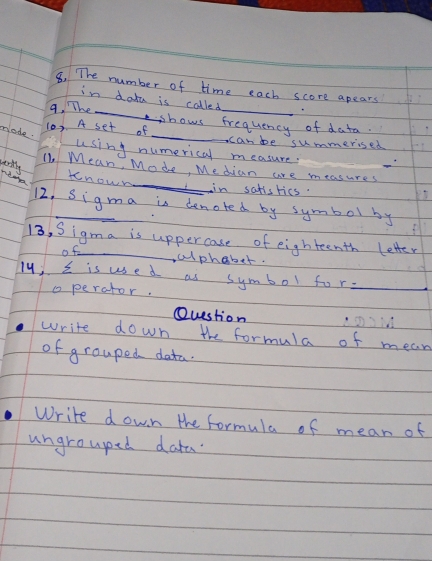 8, The number of time each score apears
in data is called ________.
9, The ________ shows frequency of data.
mode.
10, A set of ________ can be summerised
using numerical measure.
11, Mean, Mode, Median are measures
Known ________ in satistics.
12, Sigma is denoted by symbol by
________
13, Sigma is uppercase of eighteenth letter
of ________ alphabet.
14, Σ is used as symbol for ________
operator.
Question
• write down the formula of mean
of grouped data.
• Write down the formula of mean of
ungrouped data.